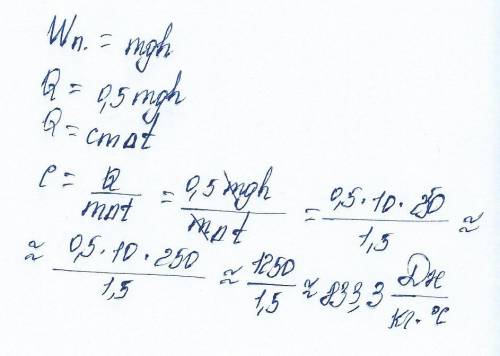 Wп. = mgh
Q = 0,5 mgh
Q = cmΔt
c = Q / mΔt = 0,5 mgh / mΔt = 0,5·10·250 / 1,5 ≈
≈ 0,5·10·250 / 1,5 ≈ 1250 / 1,5 ≈ 833,3 Дж / кг·°C